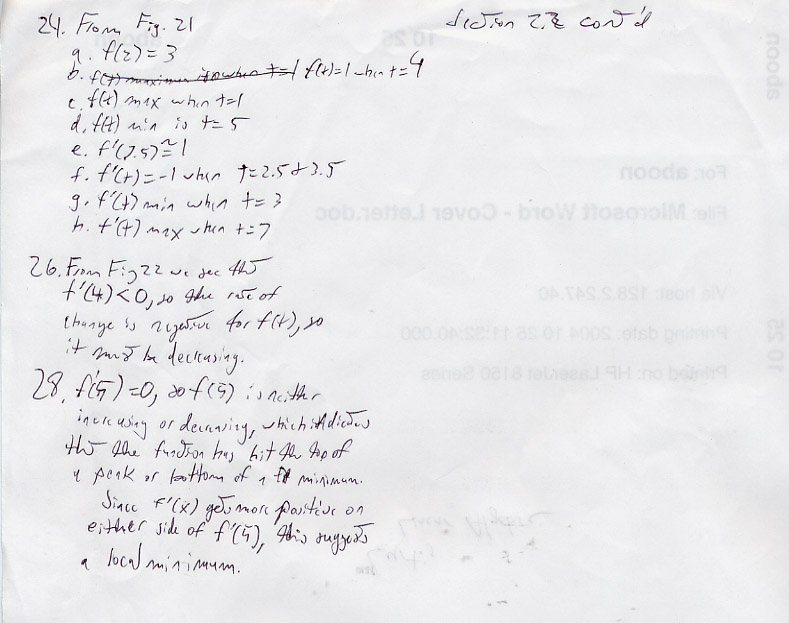 Section 2.2 cont'd
24. From Fig. 21
a. f(2)=3
b. f(t) maximum is when t=1 f(t)=1 when t=4
c. f(t) max when t=1
d. f(t) min is t=5
e. f'(7.5)≅1
f. f'(t)=-1 when t=2.5 & 3.5
g. f'(t) min when t=3
h. f'(t) max when t=7
26. From Fig 22 we see that
f'(4)<0, so the rate of
change is negative for f(t), so
it must be decreasing.
28. f'(5)=0, so f(5) is neither
increasing or decreasing, which indicates
that the function has hit the top of
a peak or bottom of a minimum.
Since f'(x) gets more positive on
either side of f'(5), this suggests
a local minimum.
aboon
10 25
For: aboon
File: Microsoft Word - Cover Letter.doc
Via host: 128.2.247.40
Printing date: 2004 10 25 11:32:40.000
Printed on: HP LaserJet 8150 Series
10 25